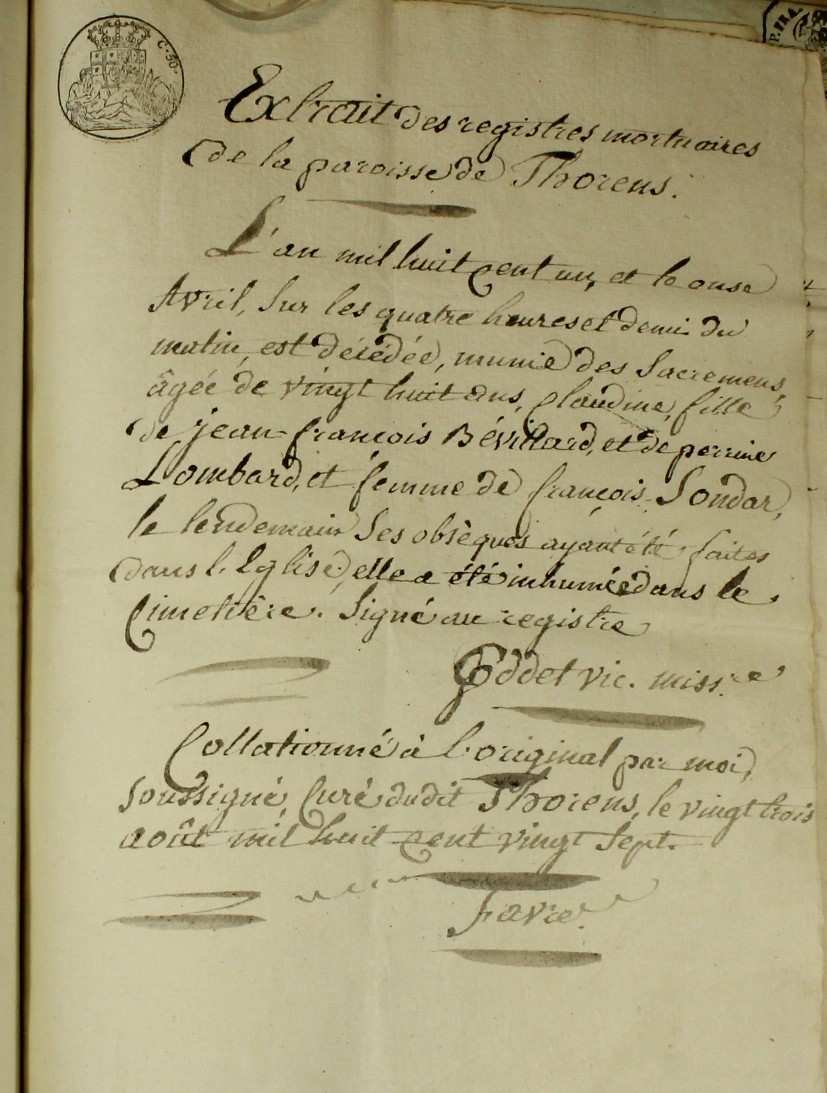 C. 50.
P. FRA.
Extrait des registres mortuaires
de la paroisse de Thorens.
L'an mil huit cent un, et le onse
Avril, sur les quatre heures et demi du
matin, est décédée, munie des Sacremens,
âgée de vingt huit ans, Claudine, fille
de jean-françois Bévillard, et de perrine
Lombard, et femme de françois Sondar,
le lendemain ses obsèques ayant été faites
dans l'Eglise, elle a été inhumée dans le
Cimetière. Signé au registre
vic. miss.re
Collationné à l'original par moi,
soussigné, Curé dudit Thorens, le vingt trois
août mil huit cent vingt sept.